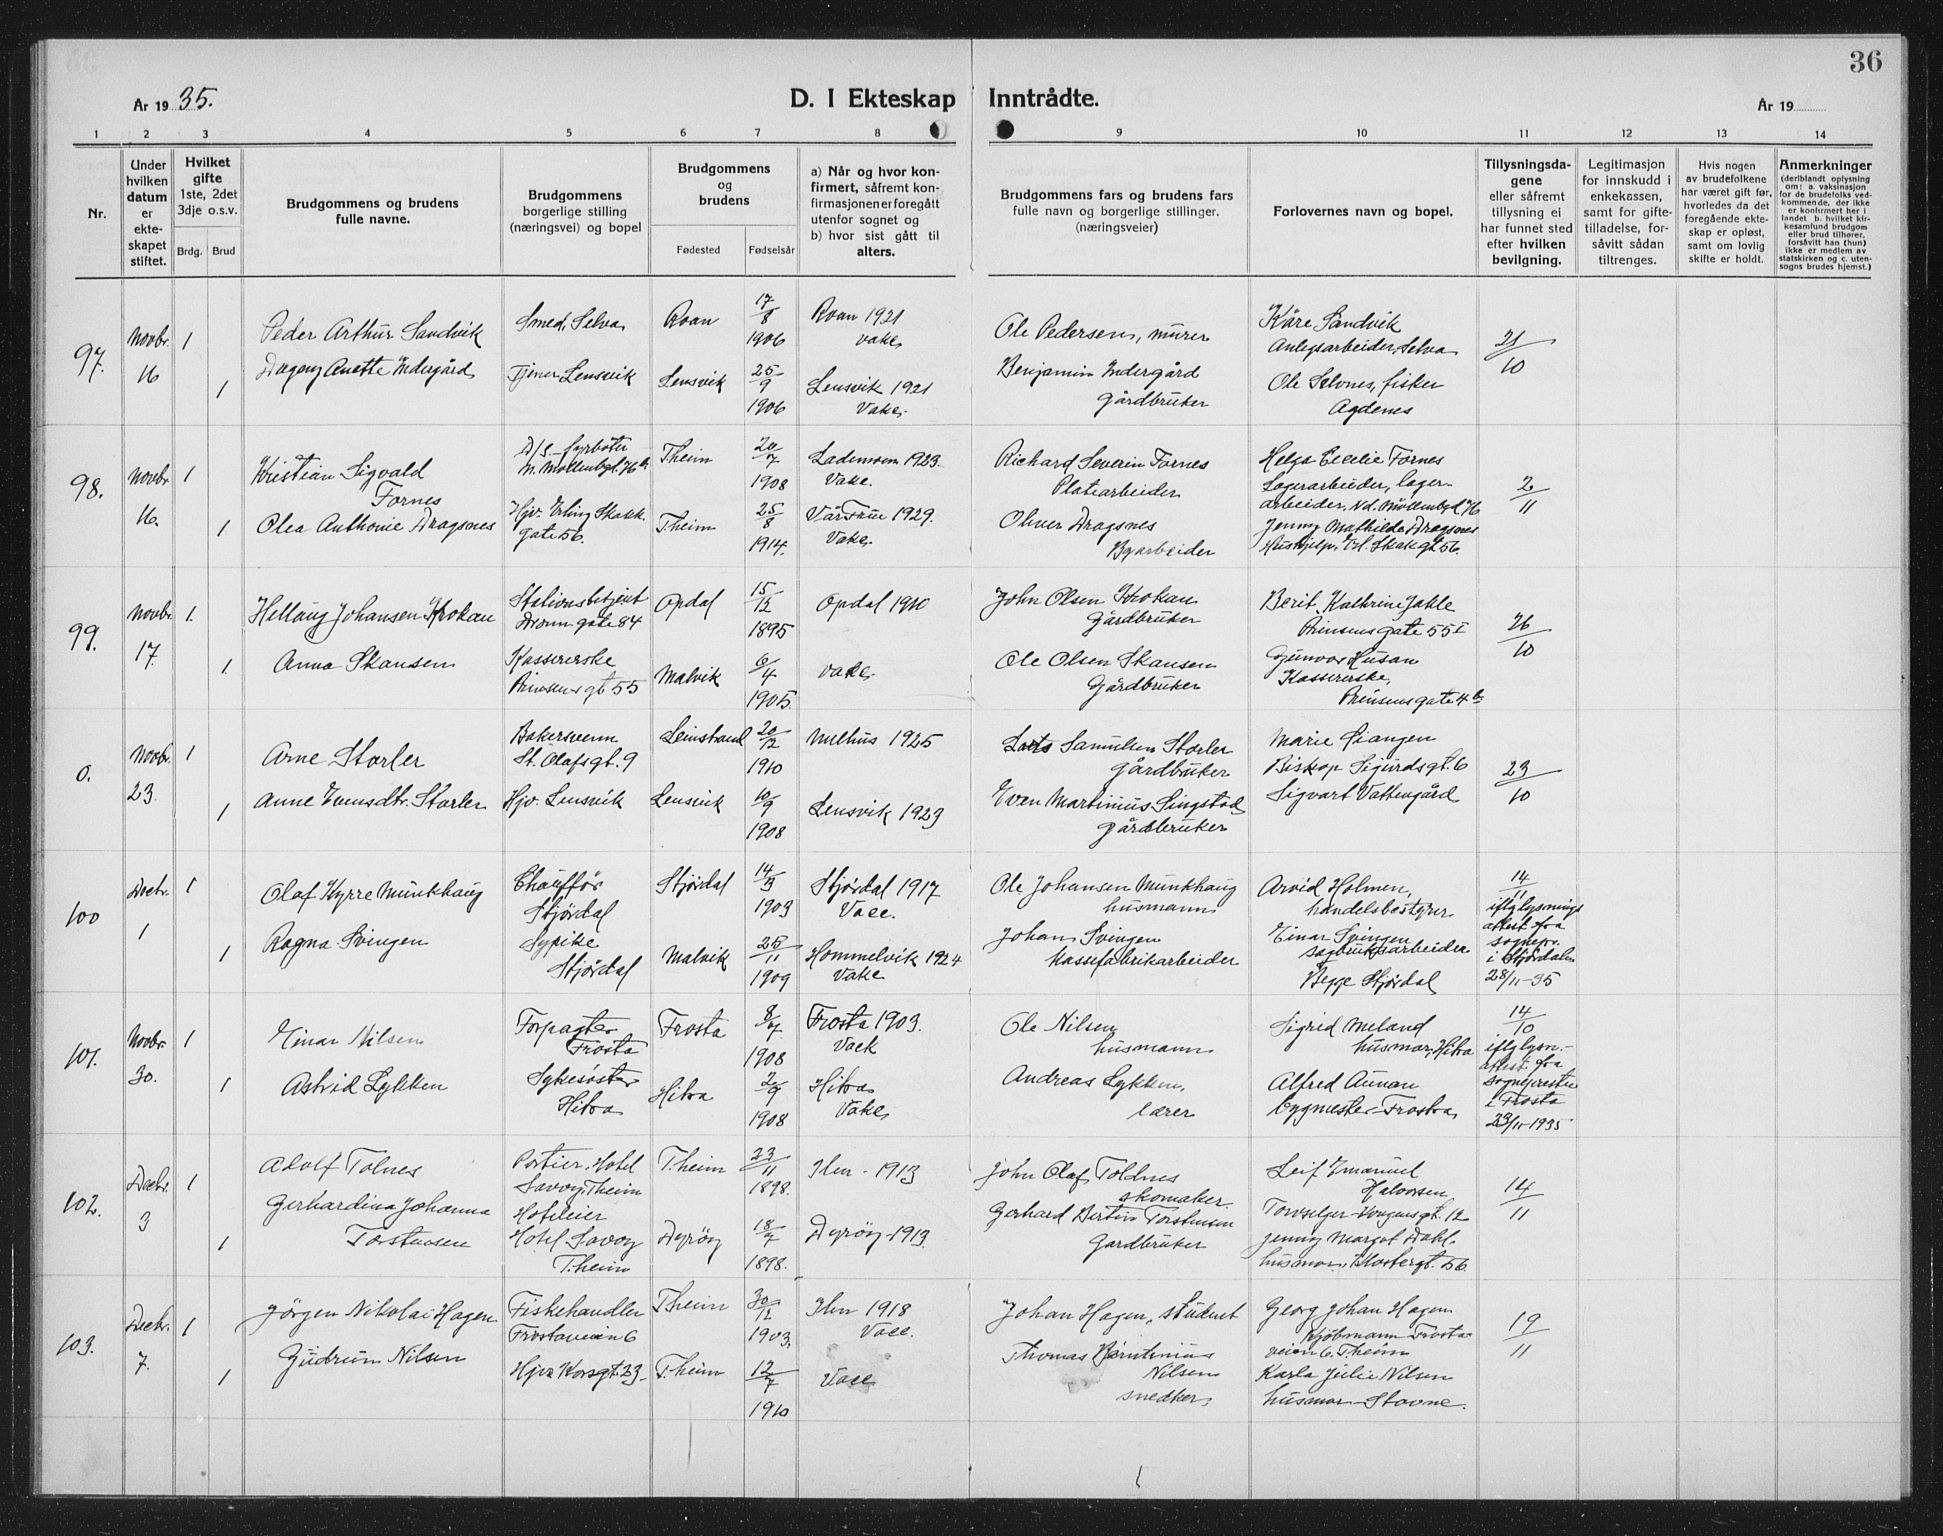 36
År 19 35.
D. I Ekteskap Inntrådte.
År 19
1 2 3 4 5 6 7 8 9 10 11 12 13 14
Nr.
Under hvilken datum er ekteskapet stiftet.
Hvilket gifte 1ste, 2det 3dje o.s.v.
Brdg. Brud
Brudgommens og brudens fulle navne.
Brudgommens borgerlige stilling (næringsvei) og bopel
Brudgommens og brudens
Fødested Fødselsår
a) Når og hvor konfirmert, såfremt konfirmasjonen er foregått utenfor sognet og
b) hvor sist gått til alters.
Brudgommens fars og brudens fars fulle navn og borgerlige stillinger. (næringsveier)
Forlovernes navn og bopel.
Tillysningsdagene eller såfremt tillysning ei har funnet sted efter hvilken bevilgning.
Legitimasjon for innskudd i enkekassen, samt for giftetilladelse, forsåvitt sådan tiltrenges.
Hvis nogen av brudefolkene har været gift før, hvorledes da det foregående ekteskap er opløst, samt om lovlig skifte er holdt.
Anmerkninger (deriblandt oplysning om: a. vaksinasjon for de brudefolks vedkommende, der ikke er konfirmert her i landet b. hvilket kirkesamfund brudgom eller brud tilhører, forsåvitt han (hun) ikke er medlem av statskirken og c. utensogns brudes hjemst.)
97. Novbr. 16 1 Peder Arthur Sandvik Smed, Selva Roan 17/8 1906 Roan 1921 Vake Ole Pedersen, murer Kåre Sandvik Anlegsarbeider, Selva 21/10
1 Dagny Anette Indergård Tjener Lensvik Lensvik 25/9 1906 Lensvik 1921 Vake. Benjamin Indergård gårdbruker Ole Selvnes, fisker Agdenes
98. Novbr. 16. 1 Kristian Sigvald Fornes D/S - fyrbøter N. Møllenbgt. 76 b. Theim 20/7 1908 Lademoen 1923. Vake. Richard Severin Fornes Platearbeider Helga Cecilie Fornes Lagerarbeider, lagerarbeider, Nd. Møllenbgt 76 2/11
1 Olea Anthonie Dragsnes Hjv. Erling Skakk. gate 56. Theim 25/8 1914. Vår Frue 1929. Vake. Oliver Dragsnes Byarbeider Jenny Mathilde Dragsnes Hushjelp, Erl. Skakgt. 56.
99. Novbr. 17. 1. Hellaug Johansen Krokan Stationsbetjent gate 84 Opdal 15/12 1895 Opdal 1910 John Olsen Krokan Gårdbruker Berit Kathrine Prinsensgate 55 I 26/10
1. Anna Skansen Kassererske Prinsens gt 55 Malvik 6/4 1905. Vake. Ole Olsen Skansen Gårdbruker Gunvor Husan Kassererske, Prinsensgate 4 b
0. Novbr. 23. 1 Arne Storler Bakersvenn St. Olafsgt. 9 Leinstrand 20/12 1910 Melhus 1925 Lars Samulsen Storler gårdbruker Marie Biskop Sigurdsgt. 6 23/10
1 Anne Evensdtr. Storler Hjv. Lensvik Lensvik 10/9 1908 Lensvik 1923 Even Martinius Singstad gårdbruker Sigvart Vattengård
100 Decbr. 1 1 Olaf Kyrre Munkhaug Chauffør Stjørdal Stjørdal 14/3 1903 Stjørdal 1917 Vace. Ole Johansen Munkhaug husmann Arvid Holmen, handelsbestyrer 14/11 iflg lysningsattest fra sognepr. i Stjørdalen 28/11-35
1 Ragna Svingen Sypike Stjørdal Malvik 25/11 1909 Hommelvik 1924 Vake Johan Svingen Massefabrikarbeider Einar Svingen sagbruksarbeider Begge Stjørdal
101. Novbr. 30. 1 Einar Nilsen Forpagter Frosta Frosta 8/7 1908 Frosta 1903. Vack Ole Nilsen husmann Sigrid Meland husmor, Hitra 14/10 iflg lysn.-attest fra sognepresten i Frosta 23/11-1935
1 Astrid Lykken Sykesøster Hitra Hitra 2/9 1908 Hitra Vake Andreas Lykken, lærer Alfred Aunan bygmester-Frosta
102. Decbr. 3 1 Adolf Tolnes Portier, Hotel Savoy, Theim T.heim 23/11 1898. Ilen - 1913 John Olaf Toldnes skomaker Leif Emanuel Halvorsen Torvselger - Kongensgt. 12 14/11
1 Gerhardina Johanna Torstensen Hoteleier Hotel Savoy T.heim Dyrøy 18/7 1898. Dyrøy - 1913. Gerhard Bertin Torstensen Gardbruker Jenny Margot Dahl. husmor, Klostergt. 56
103. Decbr. 7. 1 Jørgen Nikolai Hagen Fiskehandler Frostaveien 6 T.heim 30/12 1903. Ilen 1918 Vace. Johan Hagen, student Georg Johan Hagen Kjøbmann Frostaveien 6. T.heim 19/11
1 Gudrun Nilsen Hjv. Korsgt. 23 T.heim 12/7 1910 Vace Thomas Nilsen snedker, Karla Julie Nilsen husmor - Stavne.